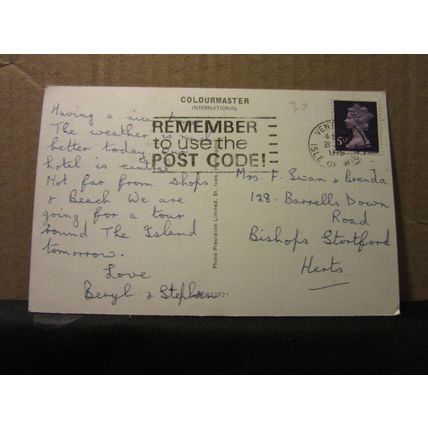 COLOURMASTER
INTERNATIONAL
30
Having a nice
The weather is much
better today. Our
hotel is central
Not far from shops
& Beach We are
going for a tour
round The Island
tomorrow.
Love
Beryl & Stephen
REMEMBER
to use the
POST CODE!
VENTNOR
1975
ISLE OF WIGHT
5p
Mrs. F. Swan & Brenda
128. Barrells Down
Road
Bishops Stortford
Herts.
Photo Precision Limited, St. Ives